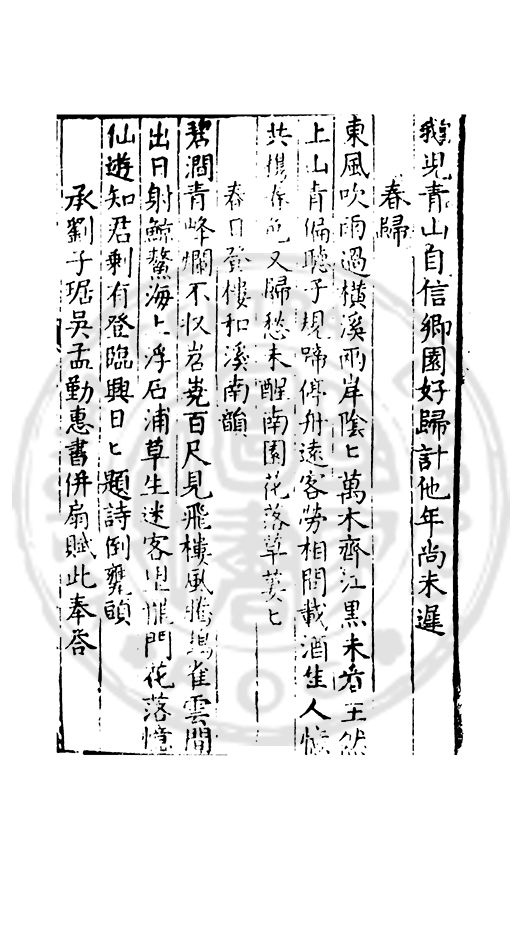 青山自信鄉園好歸計他年尚未遲
春歸
東風吹雨過橫溪兩岸陰匕萬木齊江黑未看王然
上山青偏聽子規蹄停舟遠客勞相問載酒生人
共携春色又歸愁未醒南園花落草萋匕
春日登樓和溪南韻
碧澗青峰爛不收岩嶤百尺見飛樓風雀雲間
出日射鯨鰲海上浮石浦草生迷客門花落憶
仙遊知君剩有登臨興日匕題詩倒甕頭
承劉子珽吳孟勤惠書併扇賦此奉答